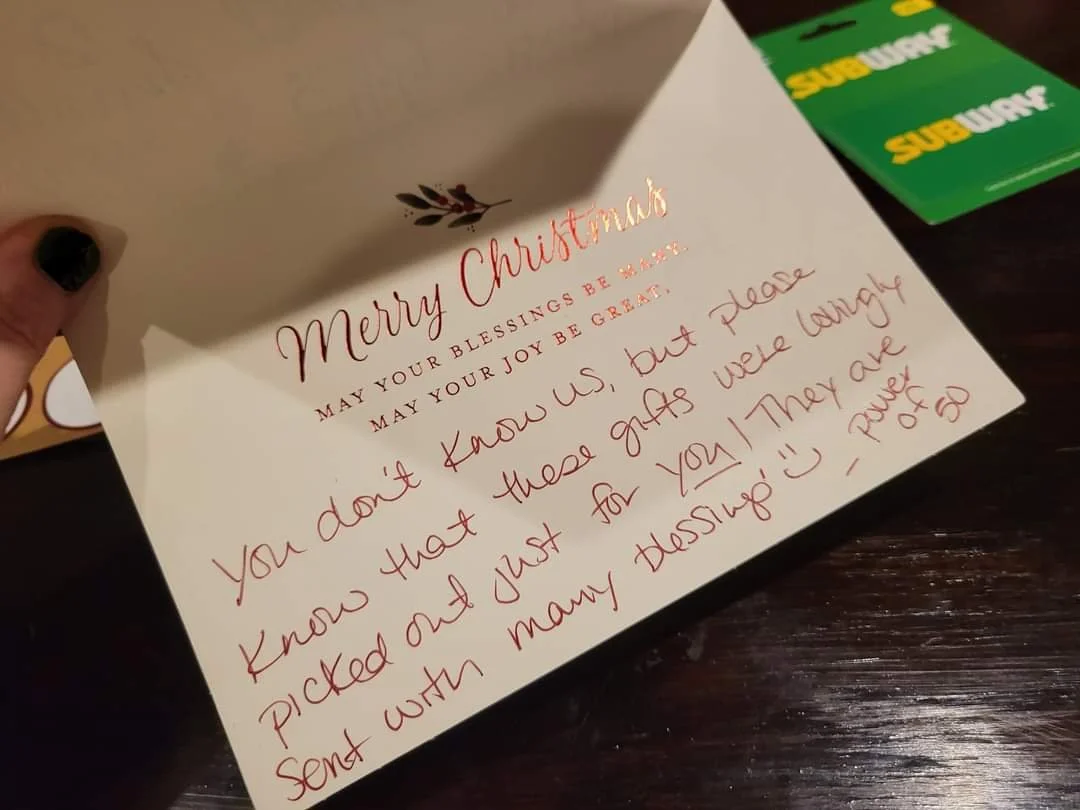 SUBWAY
SUBWAY
Merry Christmas
MAY YOUR BLESSINGS BE MANY.
MAY YOUR JOY BE GREAT.
You don't know us, but please
know that these gifts were lovingly
picked out just for you! They are
sent with many blessings! :) - power
of 50